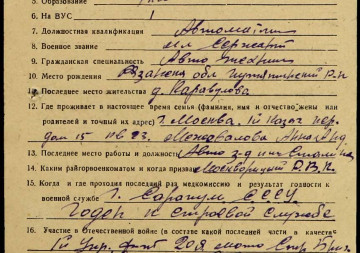 5. Образование
6. На ВУС 1
7. Должностная квалификация Автоматчик
8. Военное звание мл Сержант
9. Гражданская специальность Авто Техник
10. Место рождения Рязанская обл Р-н
11. Последнее место жительства д.
12. Где проживает в настоящее время семья (фамилия, имя и отчество жены или
родителя и точный их адрес) г. Москва,
дом 15 кв 23. Анна
13. Последнее место работы и должность Авто з-д им Сталина
14. Каким райгорвоенкоматом и когда призван Р.В.К.
15. Когда и где проходил последний раз медкомиссию и результат годности к
военной службе г. Сарапул СССР
Годен к строевой службе
16. Участие в Отечественной войне (в составе какой последней части в качестве
Укр. фнт 20я мото Стр Бриг.